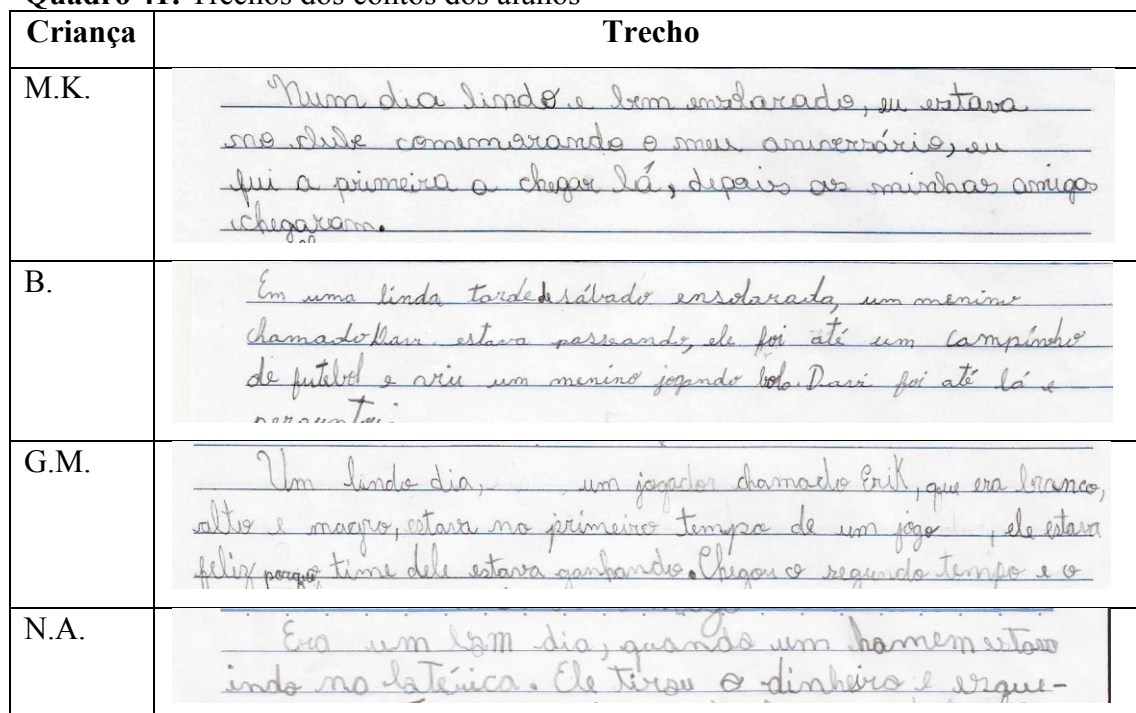 Quadro 41: Trechos dos contos dos alunos
Criança Trecho
M.K.
Num dia lindo e bem ensolarado, eu estava
no clube comemorando o meu aniversário, eu
fui a primeira a chegar lá, depois as minhas amigas
chegaram.
B.
Em uma linda tarde de sábado ensolarada, um menino
chamado Davi estava passeando, ele foi até um campinho
de futebol e viu um menino jogando bola. Davi foi até lá e
perguntou:
G.M.
Um lindo dia, um jogador chamado Erik, que era branco,
alto e magro, estava no primeiro tempo de um jogo, ele estava
feliz porque time dele estava ganhando. Chegou o segundo tempo e o
N.A.
Era um bom dia, quando um homem estava
indo na Ele tirou o dinheiro e esque-